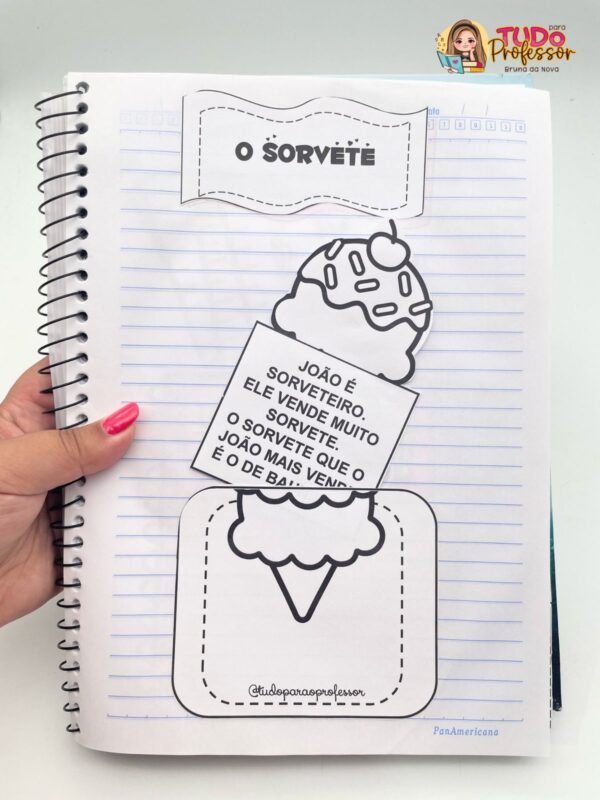 para
TUDO
Professor
Bruna da Nova
O SORVETE
JOÃO É
SORVETEIRO.
ELE VENDE MUITO
SORVETE.
O SORVETE QUE O
JOÃO MAIS
É O DE
@tudoparaoprofessor
PanAmericana